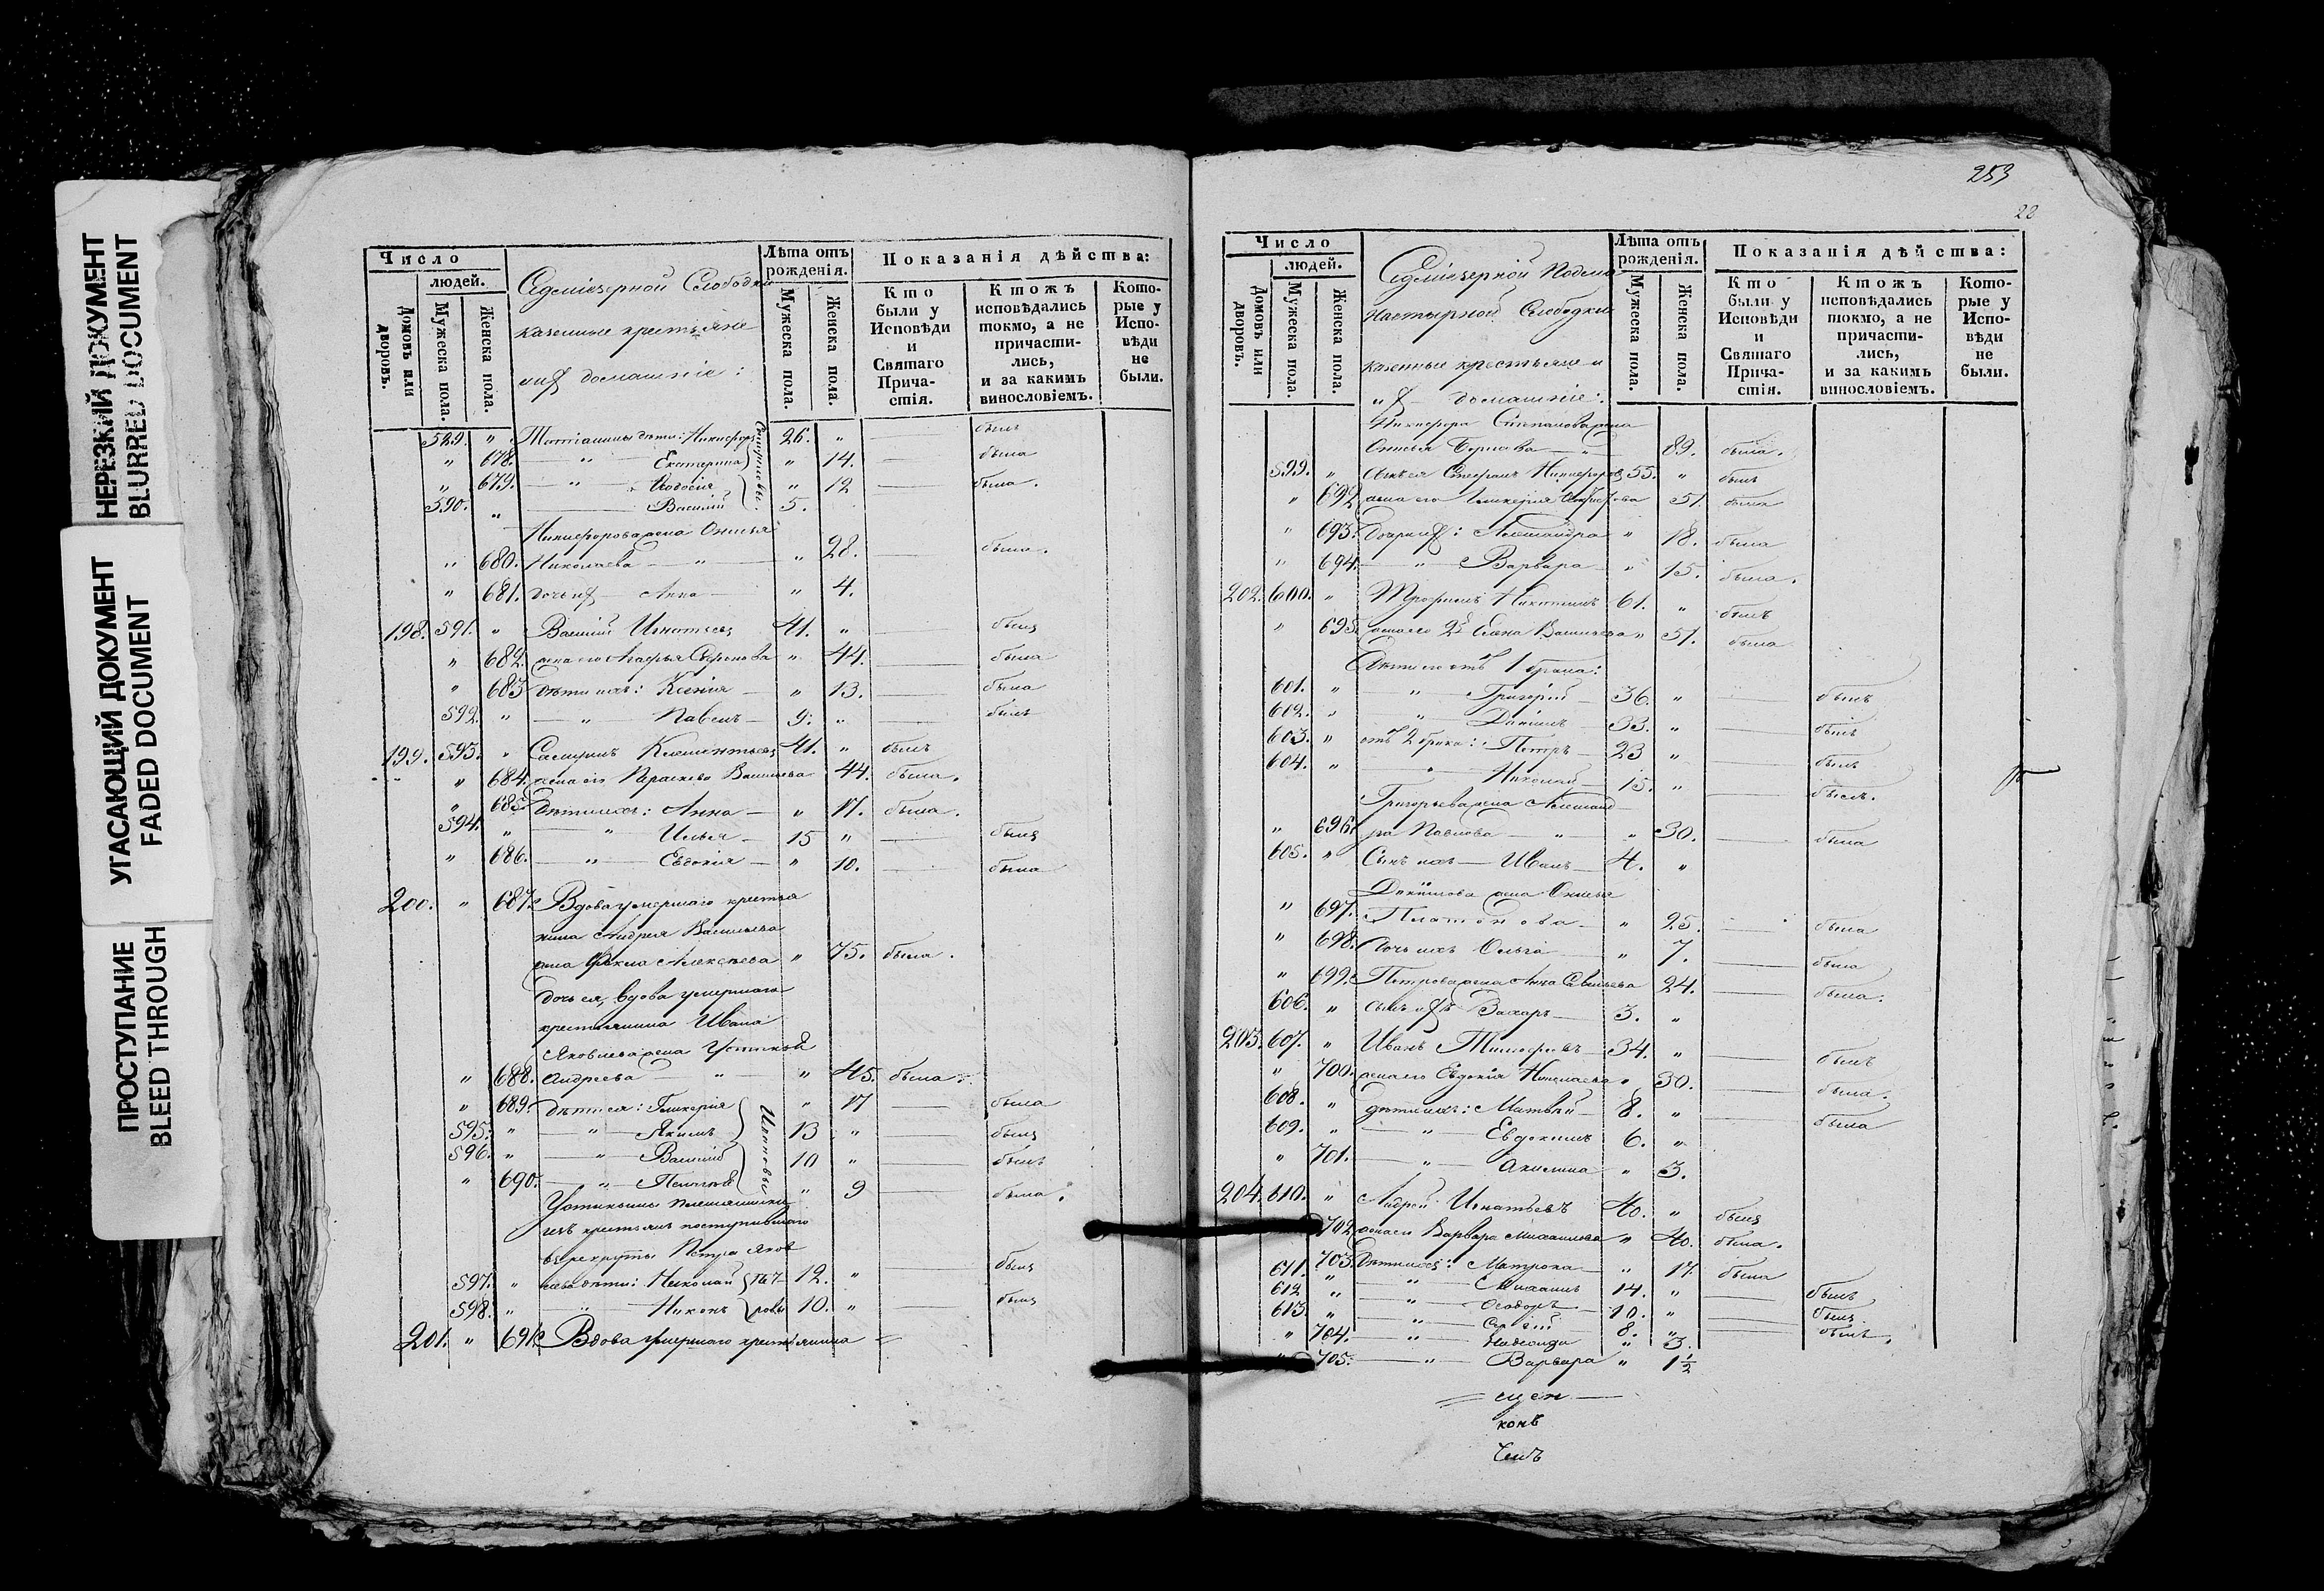 НЕРЕЗКИЙ ДОКУМЕНТ
BLURRED DOCUMENT
УГАСАЮЩИЙ ДОКУМЕНТ
FADED DOCUMENT
ПРОСТУПАНИЕ
BLEED THROUGH
Число
людей.
Домовъ или дворовъ.
Мужеска пола.
Женска пола.
Седміезерной Слободки
казенные крестьяне
и ихъ домашніе:
Лѣта отъ рожденія.
Мужеска пола.
Женска пола.
Показанія дѣйства:
Кто были у Исповѣди и Святаго Причастія.
Ктожъ исповѣдались токмо, а не причастились, и за какимъ винословіемъ.
Которые у Исповѣди не были.
529. " дѣти: Никифоръ 26. " — былъ
" 678. — " — Екатерина " 14. — была
" 679. — " — Ѳеодосія " 12 — была.
590. " — Василій 5.
Никифорова жена
" 680. Николаева — " — " 28. — была.
" 681. дочь ихъ — Анна — " 4.
198. 591. " Василій Игнатьевъ 41. " — былъ
" 682. жена его Агафья " 44. — была
" 683 дѣти ихъ: Ксенія — " 13. — была
592. " — " — Павелъ — 9. " — былъ
199. 593. " Клементьевъ 41. " былъ
" 684. жена его Параскева Васильева 44. была.
" 685. дѣти ихъ: Анна — " 17. была.
594. " — " — Илья — 15 " — былъ
" 686. — " — Евдокія — " 10. — была
200. " 687. Вдова умершаго крестья
нина Андрея Васильева
жена Ѳекла Алексѣева " 75. была.
дочь ея, вдова умершаго
крестьянина Ивана
Яковлева жена
" 688. Андреева — " — " 45. была.
" 689. дѣти ея: Гликерія " 17 — была
595. " — " — Якимъ 13 " — былъ
596. " — " — Василій 10 " — былъ
Ивановы
" 690. — " — " 9 — была.
ихъ крестьянъ поступившаго
въ рекруты Петра Яков
лева дѣти: Николай Пет-
597. " 12. " — былъ
598. " — " — Никонъ ровы 10. " — былъ
201. " 691. Вдова умершаго крестьянина
253
22
Число
людей.
Домовъ или дворовъ.
Мужеска пола.
Женска пола.
Седміезерной Подмо
настырной Слободки
казенные крестьяне и
ихъ — домашніе:
Лѣта отъ рожденія.
Мужеска пола.
Женска пола.
Показанія дѣйства:
Кто были у Исповѣди и Святаго Причастія.
Ктожъ исповѣдались токмо, а не причастились, и за какимъ винословіемъ.
Которые у Исповѣди не были.
Никифора Степанова жена
— " — 89. была.
599. " Степанъ Никифоровъ 55. " былъ
" 692 жена его Гликерія 51. была
" 693. дочери ихъ: Александра " 18. была
" 694. — " — Варвара — " 15. была.
202. 600. " Трофимъ Никитинъ 61. " былъ
" 695. жена его 2я Елена Васильева " 51. была
Дѣти его отъ 1 брака:
601. " " Григорій — 36. " — былъ
602. " " Даніилъ — 33. " — былъ
603. " отъ 2 брака: Петръ — 23 " — былъ
604. " " Николай — 15. " — былъ.
Григорьева жена Александ
" 696. ра Павлова — " — " 30. — была
605. " Сынъ ихъ — Иванъ — 4. "
Даніилова жена
" 697. Платонова — " 25. — была
" 698. Дочь ихъ Ольга — " 7. — была
" 699. Петрова жена Анна Савельева 24. — была.
606. " сынъ ихъ Захаръ — 3. "
203. 607. " Иванъ Тимофеевъ — 34. " — былъ
" 700. жена его Евдокія Николаева " 30. — была.
608. " дѣти ихъ: Матвѣй — 8. " — была
609. " — " — Евдокимъ 6. "
" 701. — " — Акилина " 3.
204. 610. " Андрей Игнатьевъ 40. " былъ
702. жена его Варвара Михаилова " 40. была.
703. Дѣти ихъ: Матрона — " 17. была
611. " " Михаилъ 14. " — былъ
612 " — " — Ѳеодоръ 10. " — былъ.
613. " — " — 8. " — былъ.
" 704. " Надежда " 3.
" 705. — " — Варвара " 1½